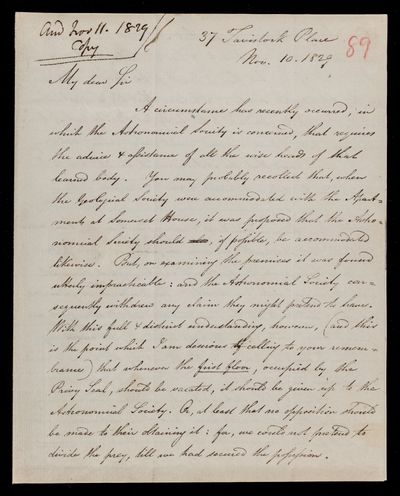 And Nov 11. 1829
Copy
37 Tavistock Place
Nov. 10. 1829
89
My dear Sir
A circumstance has recently occurred, in
which the Astronomical Society is concerned, that requires
the advice & assistance of all the wise heads of that
learned body. You may probably recollect that, when
the Geological Society were accommodated with the Apart=
ments at Somerset House, it was proposed that the Astro=
nomical Society should, if possible, be accommodated
likewise. But, on examining the premises it was found
utterly impracticable: and the Astronomical Society con=
sequently withdrew any claim they might pretend to have.
With this full & distinct understanding, however, (and this
is the point which I am desirous of calling to your remem=
brance) that whenever the first floor, occupied by the
Privy Seal, should be vacated, it should be given up to the
Astronomical Society. Or, at least that no opposition should
be made to their obtaining it: for, we could not pretend to
divide the prey, till we had secured the possession.